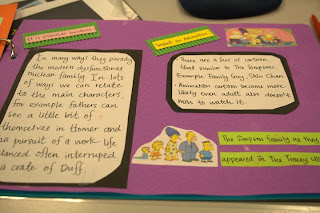 It is popular because
In many ways they parody
the modern dysfunctional
nuclear family. In lots
of ways we can relate
to the main characters,
for example fathers can
see a little bit of
themselves in Homer and
an pursuit of a work life
lanced often interruped
a crate of Duff.
Animation
There are a few of cartoon
that similar to The Simpsons.
Example: Family Guy, Shin Chan
• Animation cartoon become more
likely even adult also doesn't
miss to watch it.
The Simpson family as they
appeared in The Tracey Ul